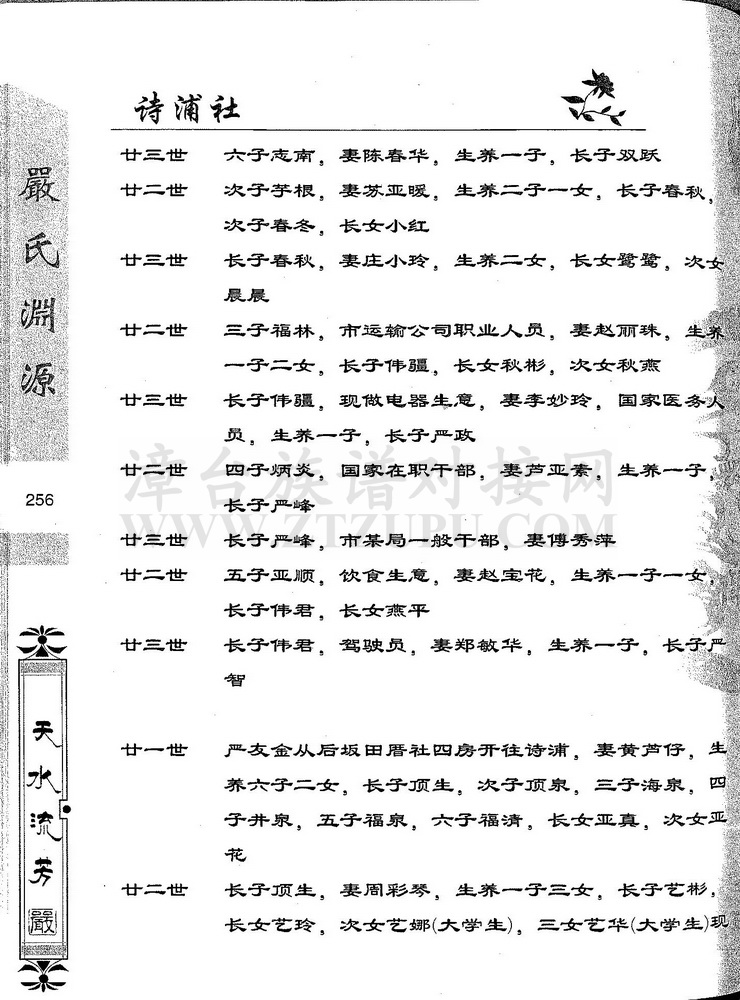 诗浦社
廿三世 六子志南，妻陈春华，生养一子，长子双跃
廿二世 次子芋根，妻苏亚暖，生养二子一女，长子春秋，
次子春冬，长女小红
廿三世 长子春秋，妻庄小玲，生养二女，长女鹭鹭，次女
晨晨
廿二世 三子福林，市运输公司职业人员，妻赵丽珠，生养
一子二女，长子伟疆，长女秋彬，次女秋燕
廿三世 长子伟疆，现做电器生意，妻李妙玲，国家医务人
员，生养一子，长子严政
廿二世 四子炳炎，国家在职干部，妻芦亚素，生养一子，
长子严峰
廿三世 长子严峰，市某局一般干部，妻傅秀萍
廿二世 五子亚顺，饮食生意，妻赵宝花，生养一子一女，
长子伟君，长女燕平
廿三世 长子伟君，驾驶员，妻郑敏华，生养一子，长子严
智
廿一世 严友金从后坂田厝社四房开往诗浦，妻黄芦仔，生
养六子二女，长子顶生，次子顶泉，三子海泉，四
子井泉，五子福泉，六子福清，长女亚真，次女亚
花
廿二世 长子顶生，妻周彩琴，生养一子三女，长子艺彬，
长女艺玲，次女艺娜(大学生)，三女艺华(大学生)现
嚴氏淵源
256
天水流芳
嚴
漳台族谱对接网
WWW.ZTZUPU.COM